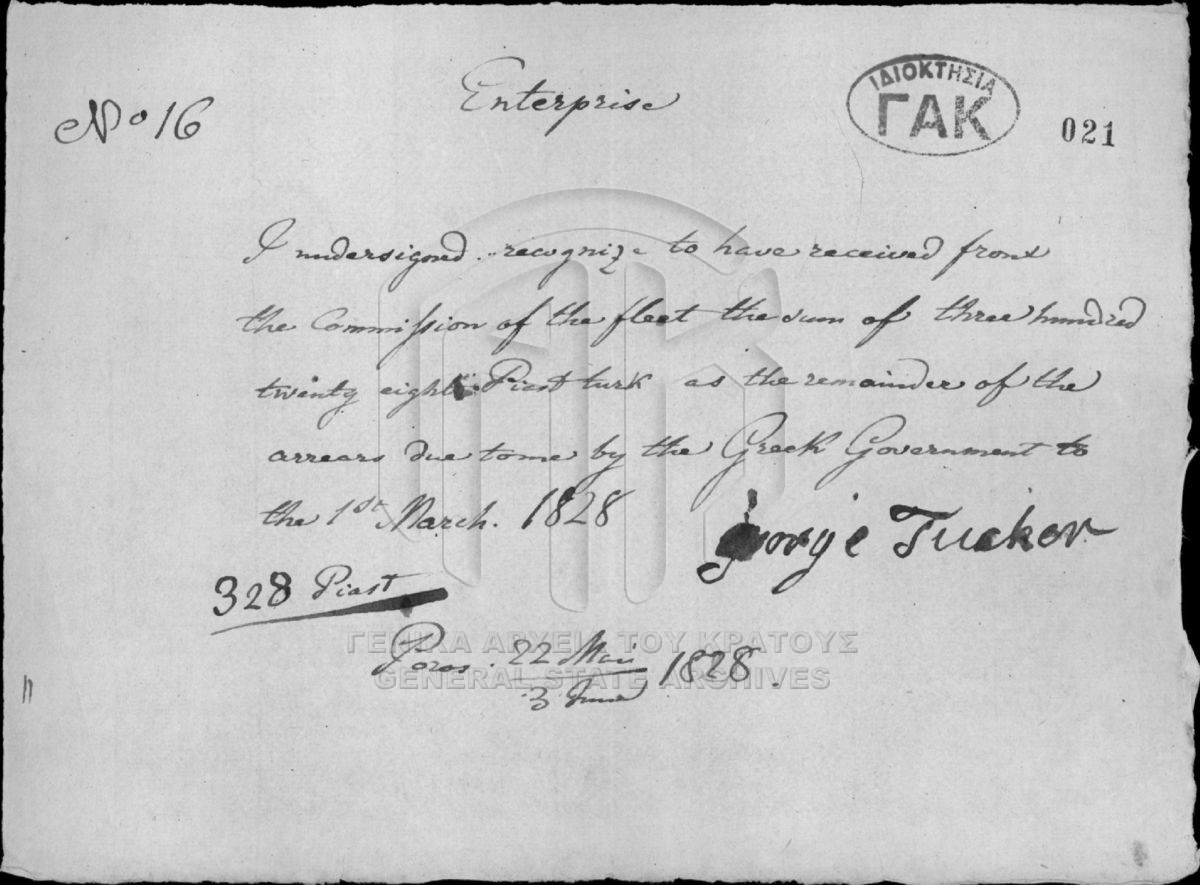 No 16
Enterprise
ΙΔΙΟΚΤΗΣΙΑ
ΓΑΚ
021
I undersigned recognize to have received from
the Commission of the fleet the sum of three hundred
twenty eight Piast turk as the remainder of the
arrears due to me by the Greek Government to
the 1st March. 1828
George Tucker
328 Piast
Poros. 22 Mai
3 June 1828.
ΓΕΝΙΚΑ ΑΡΧΕΙΑ ΤΟΥ ΚΡΑΤΟΥΣ
GENERAL STATE ARCHIVES